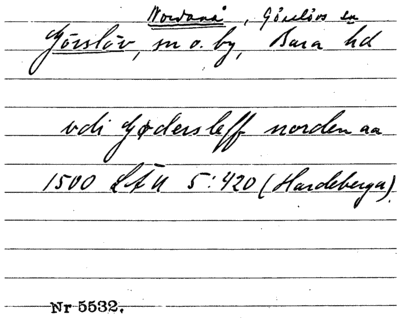 Nordanå, Görslövs sn
Görslöv, sn o. by, Bara hd
vdi Gødersleff norden aa
1500 LÄU 5:420 (Hardeberga)
Nr 5532.